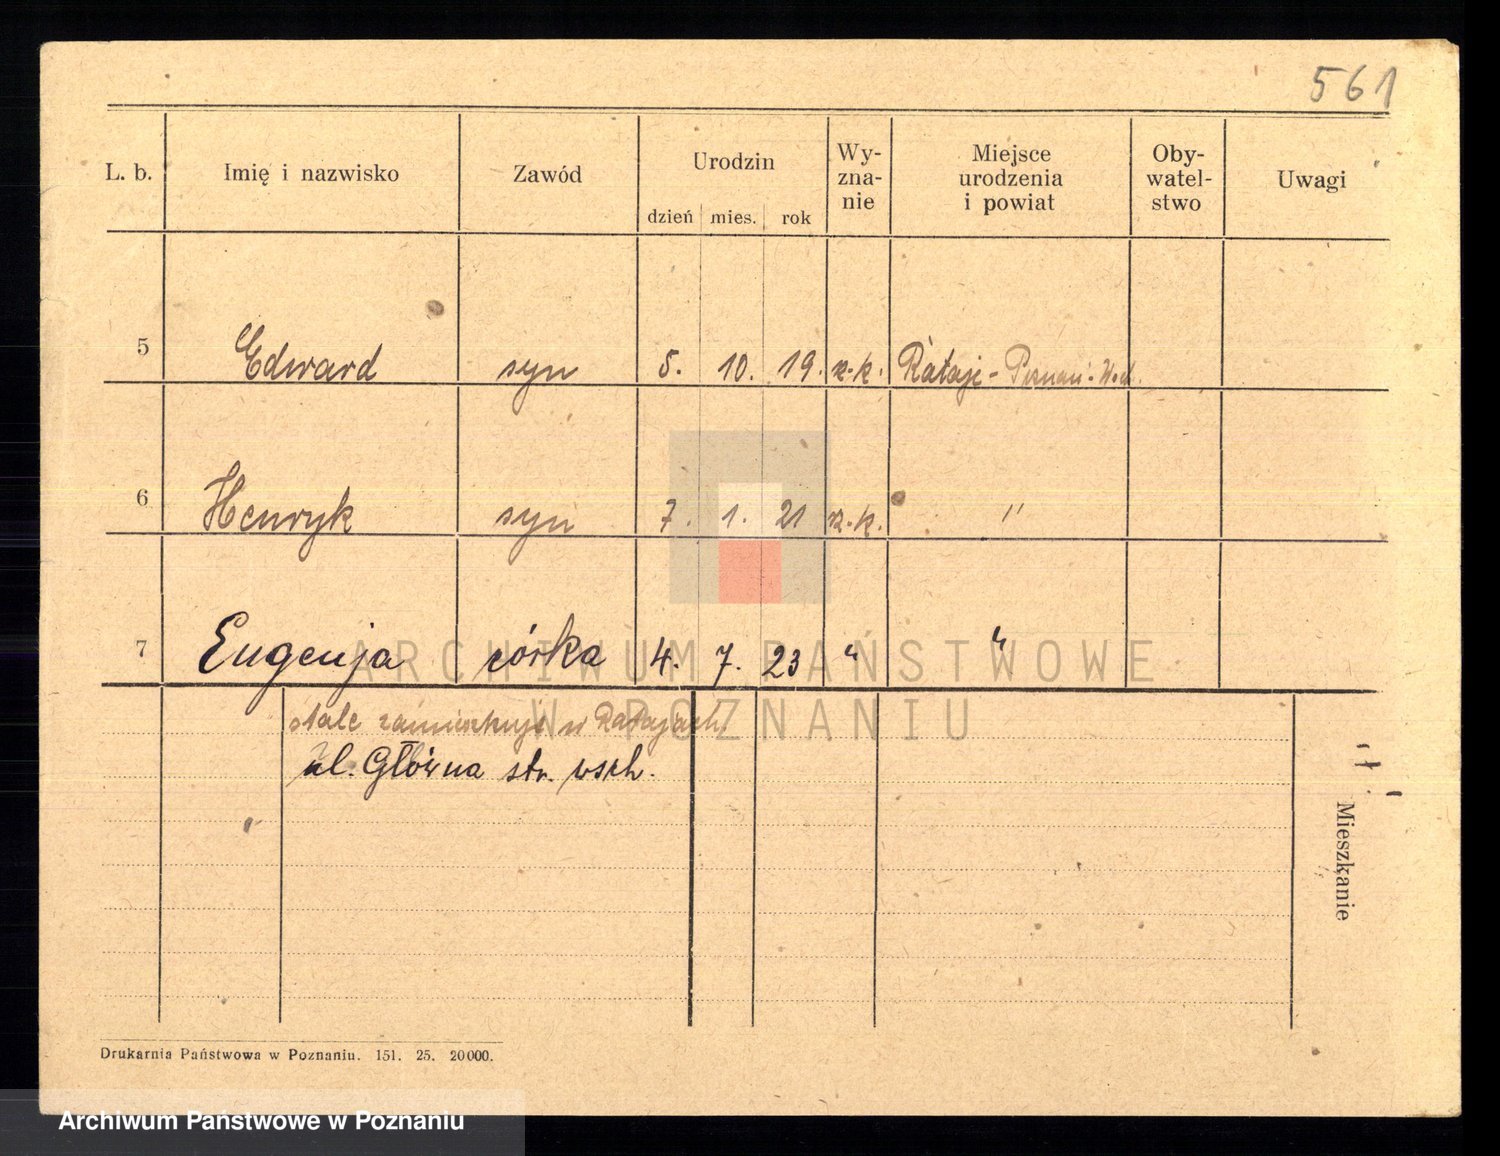 561
L. b. Imię i nazwisko Zawód Urodzin Wy- Miejsce Oby- Uwagi
zna- urodzenia watel-
dzień mies. rok nie i powiat stwo
5 Edward syn 5. 10. 19. rz.-k. Rataje - Poznań - Wsch.
6 Henryk syn 7. 1. 21 rz.-k. "
7 Eugenja córka 4. 7. 23 " "
stale zamieszkuje w Ratajach
ul. Główna str. wsch.
Mieszkanie
ARCHIWUM PAŃSTWOWE
W POZNANIU
Drukarnia Państwowa w Poznaniu. 151. 25. 20000.
Archiwum Państwowe w Poznaniu